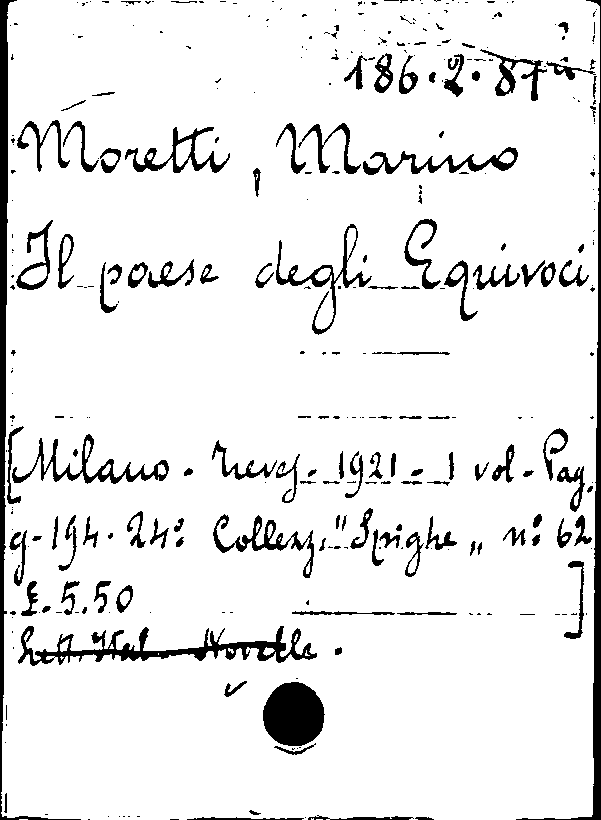 186.2.87
Moretti, Marino
Il paese degli Equivoci
[Milano - Treves - 1921 - 1 vol - Pag.
g-194. 24º Collez. "Spighe„ nº 62
£. 5.50 ]
Lett. Ital - Novelle.